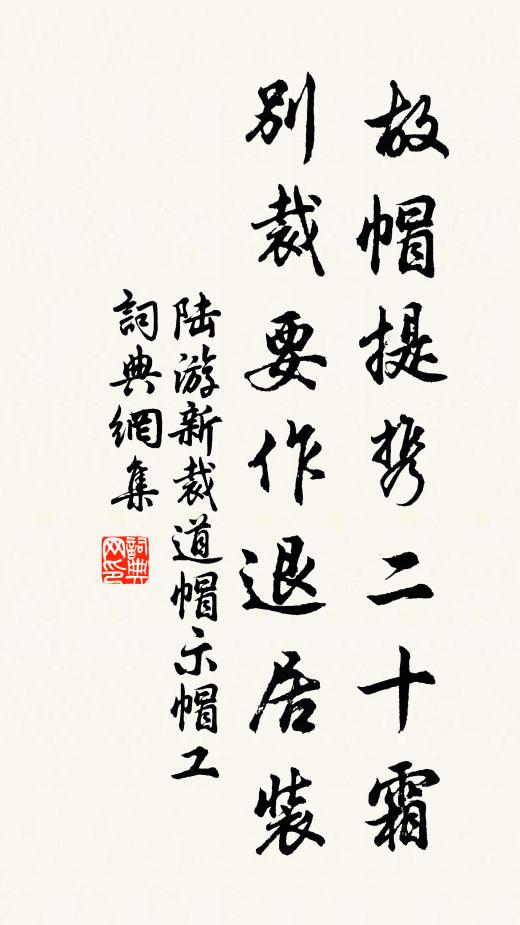 故帽提携二十霜
别裁要作退居装
陆游新裁道帽示帽工
詞典網集
詞典网印